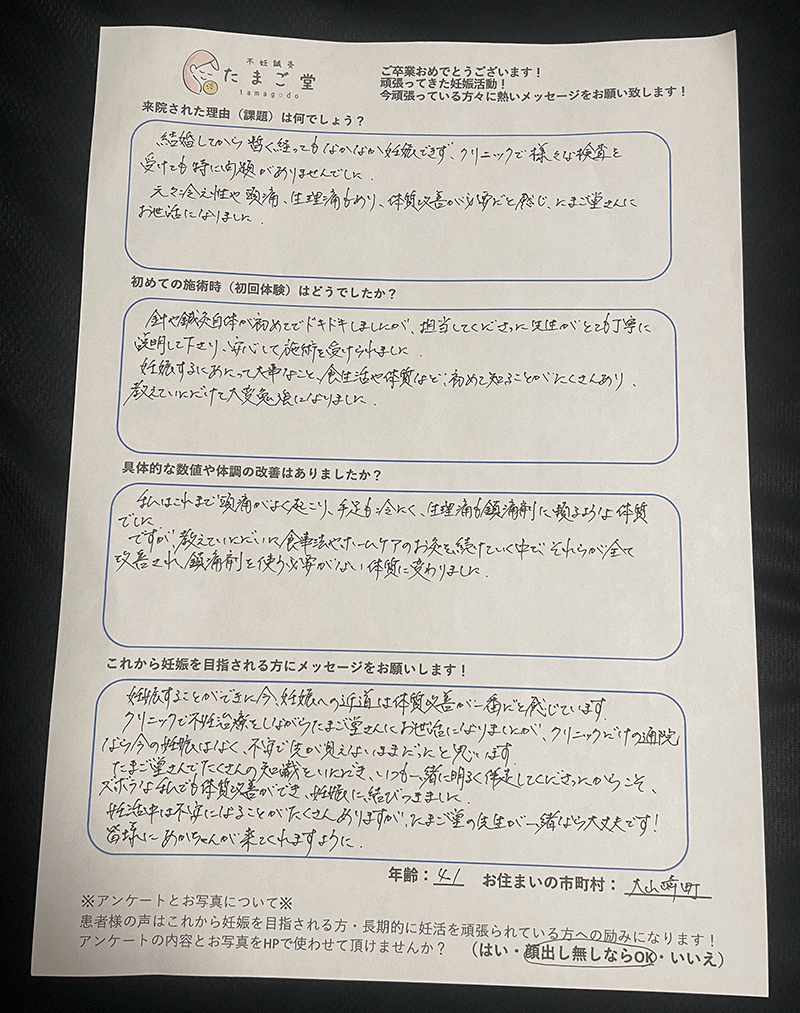 不妊鍼灸
たまご堂
tamagodo
ご卒業おめでとうございます！
頑張ってきた妊娠活動！
今頑張っている方々に熱いメッセージをお願い致します！
来院された理由（課題）は何でしょう？
結婚してから暫く経ってもなかなか妊娠できず、クリニックで様々な検査を
受けても特に問題がありませんでした。
元々冷え性や頭痛、生理痛もあり、体質改善が必要だと感じ、たまご堂さんに
お世話になりました。
初めての施術時（初回体験）はどうでしたか？
針や鍼灸自体が初めてでドキドキしましたが、担当してくださった先生がとても丁寧に
説明して下さり、安心して施術を受けられました。
妊娠するにあたって大事なこと、食生活や体質など、初めて知ることがたくさんあり、
教えていただけて大変勉強になりました。
具体的な数値や体調の改善はありましたか？
私はこれまで頭痛がよく起こり、手足も冷たく、生理痛も鎮痛剤に頼るような体質
でした
ですが教えていただいた食事法やホームケアのお灸を続けていく中でそれらが全て
改善され、鎮痛剤を使う必要がない体質に変わりました。
これから妊娠を目指される方にメッセージをお願いします！
妊娠することができた今、妊娠への近道は体質改善が一番だと感じています。
クリニックで不妊治療をしながらたまご堂さんにお世話になりましたが、クリニックだけの通院
なら今の妊娠はなく、不安で先が見えないままだったと思います。
たまご堂さんでたくさんの知識をいただき、いつも一緒に明るく伴走してくださったからこそ、
ズボラな私でも体質改善ができ、妊娠に結びつきました。
妊活中は不安になることがたくさんありますが、たまご堂の先生が一緒なら大丈夫です！
皆様にあかちゃんが来てくれますように。
年齢：41 お住まいの市町村：大山崎町
※アンケートとお写真について※
患者様の声はこれから妊娠を目指される方・長期的に妊活を頑張られている方への励みになります！
アンケートの内容とお写真をHPで使わせて頂けませんか？ （はい・顔出し無しならOK・いいえ）